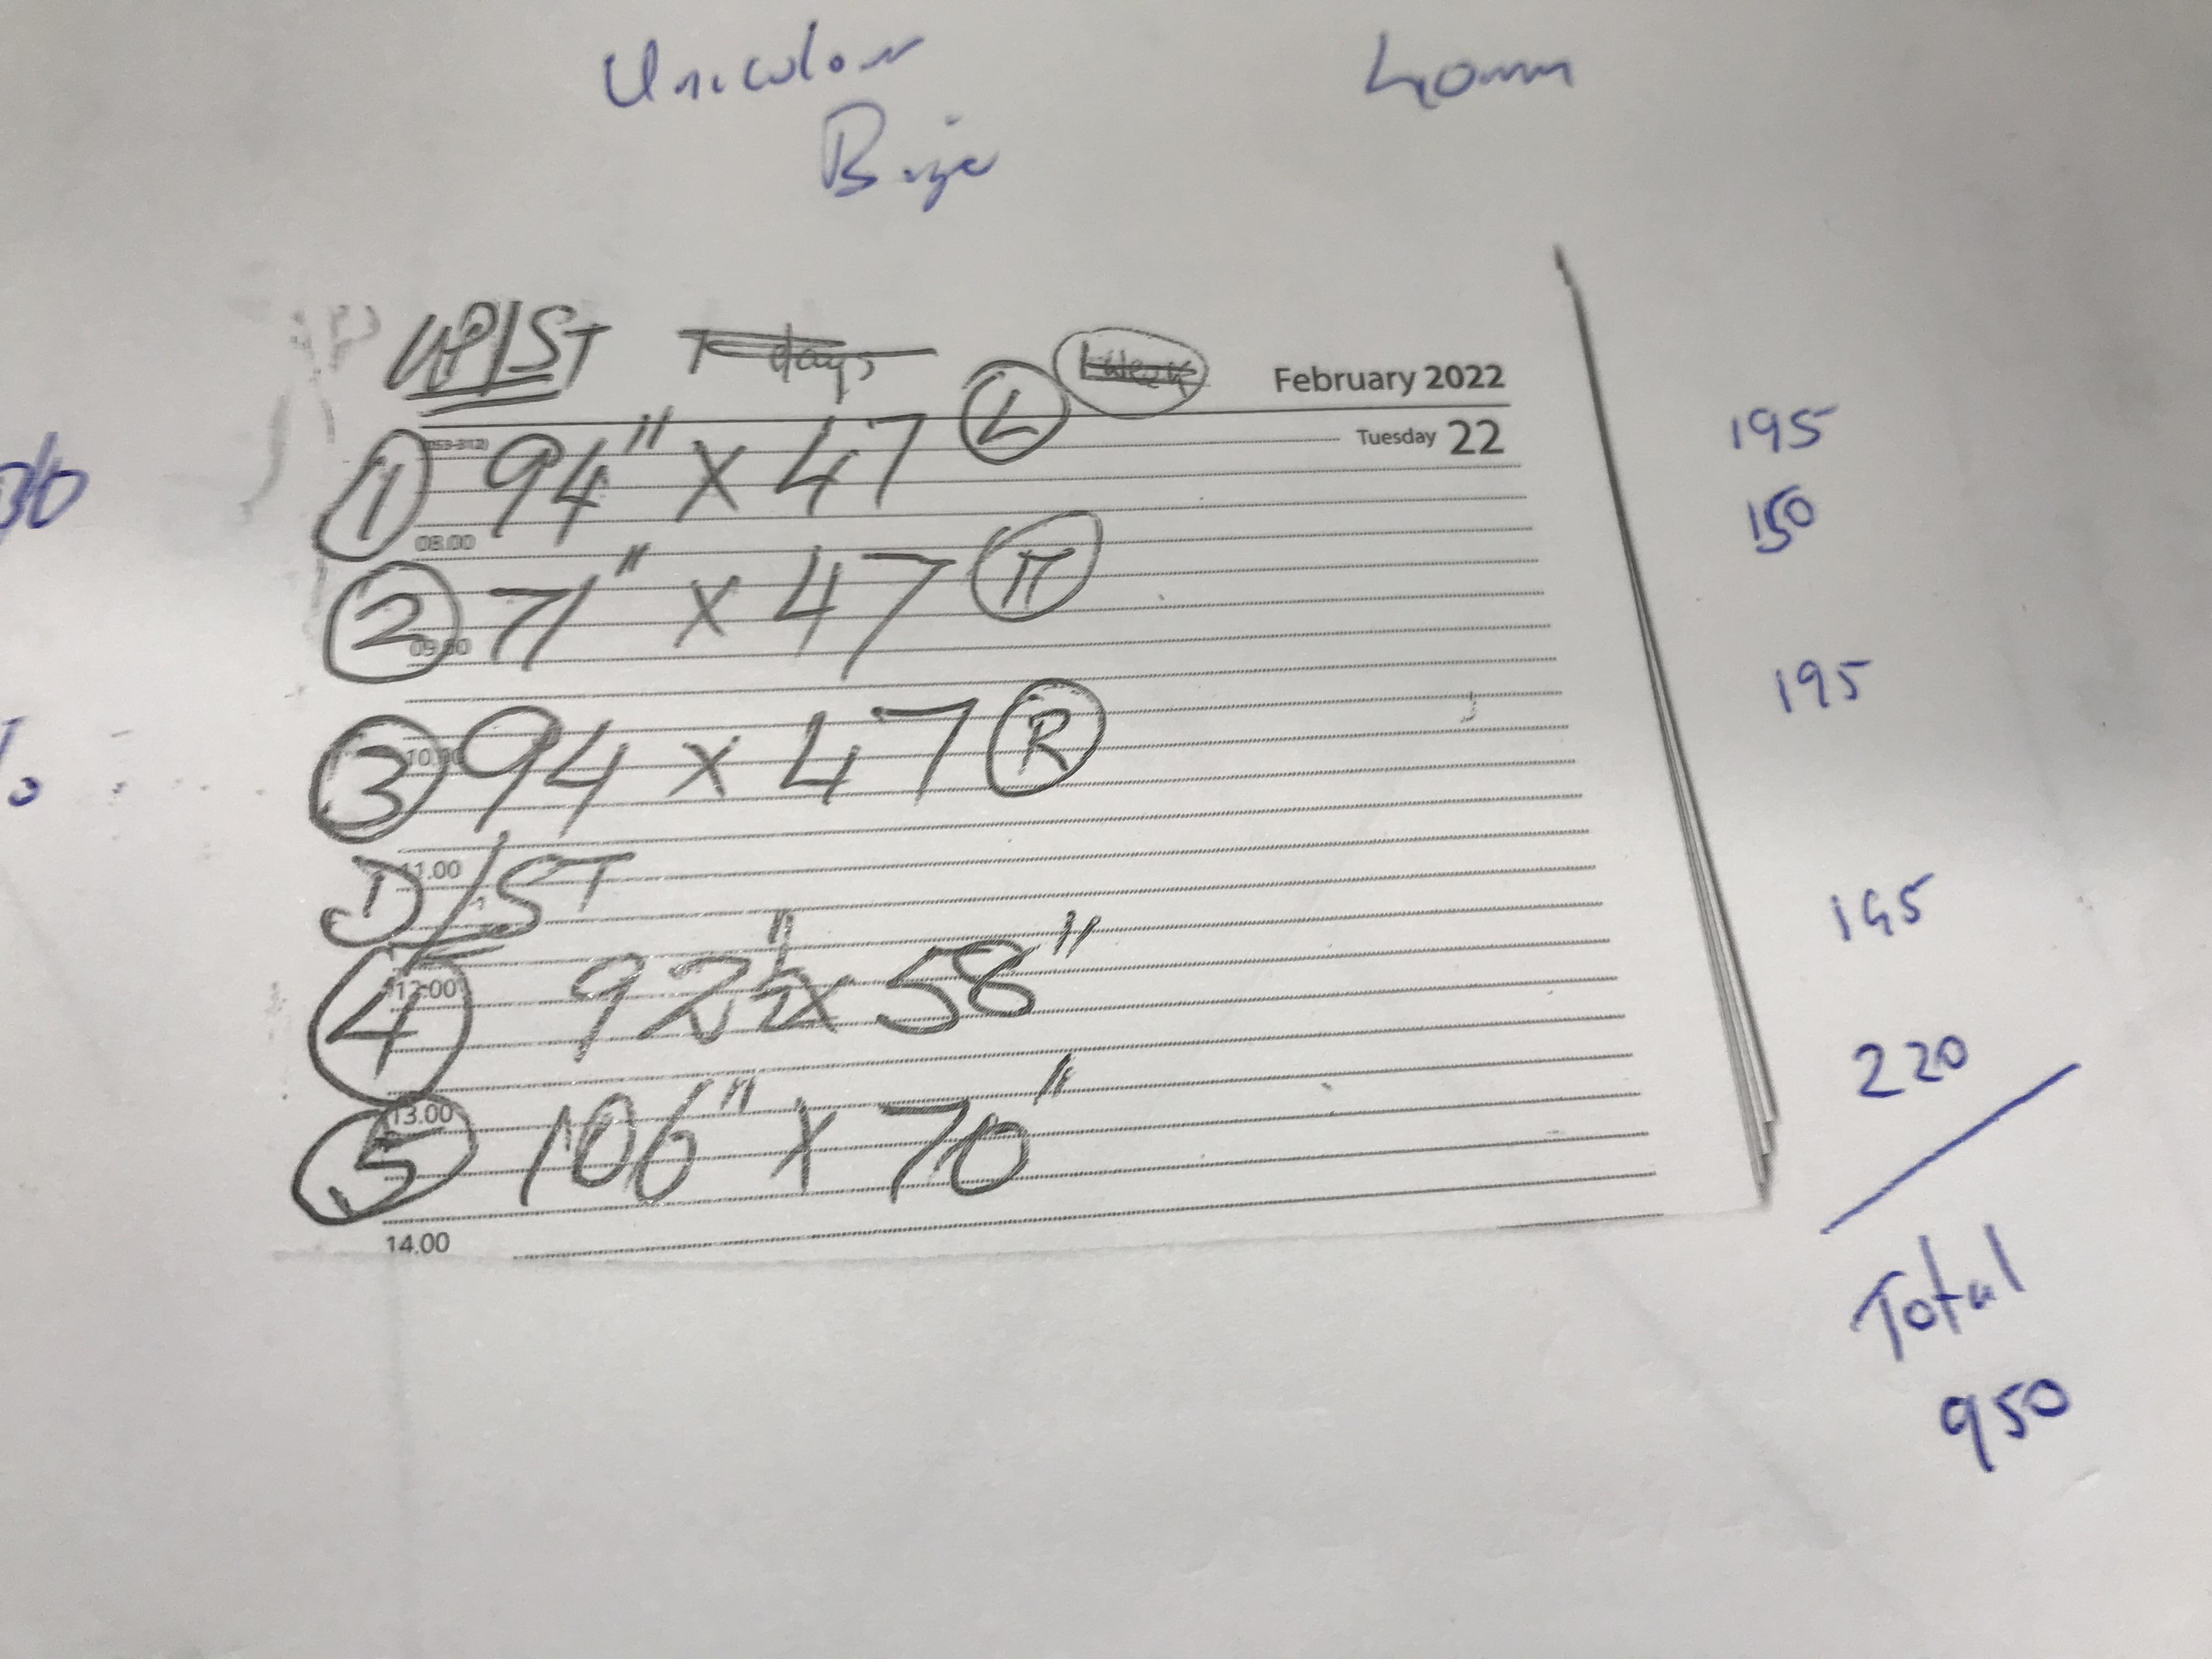 Unicolour 40mm
Bige
UP/ST 7 days 1 week
February 2022
Tuesday 22
(053-312)
1 94" x 47 L 195
08.00
2 71" x 47 M 150
09.00
3 94 x 47 R 195
10.00
11.00
D/ST
4 92 1/2" x 58" 195
12.00
5 106" x 70" 220
13.00
14.00
Total
950